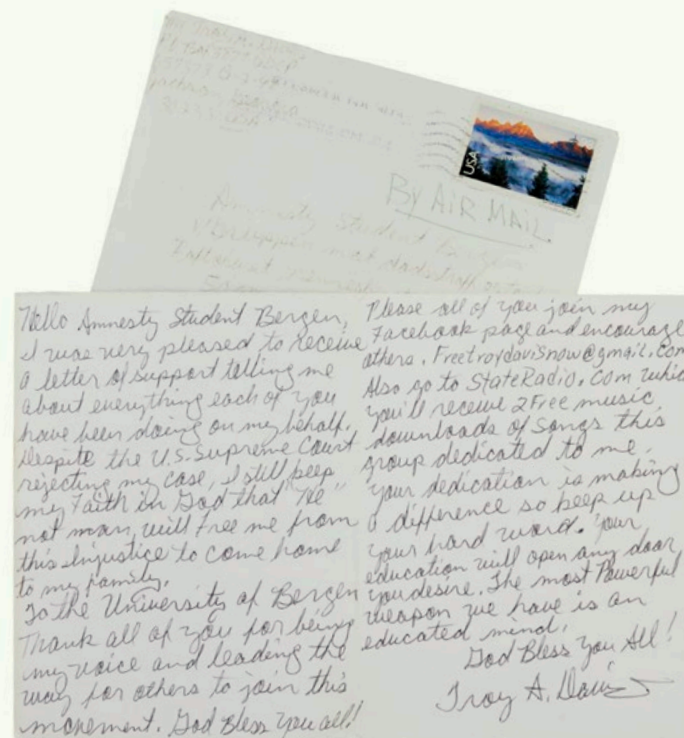 USA
BY AIR MAIL
Amnesty Student Bergen
Hello Amnesty Student Bergen,
I was very pleased to receive
a letter of support telling me
about everything each of you
have been doing on my behalf.
Despite the U.S. Supreme Court
rejecting my case, I still keep
my Faith in God that "He"
not man, will Free me from
this injustice to come home
to my family.
To the University of Bergen
Thank all of you for being
my voice and leading the
way for others to join this
movement. God Bless You all!
Please all of you join my
Facebook page and encourage
others. Freetroydavisnow@gmail.com
Also go to StateRadio.com which
you'll receive 2 Free music
downloads of songs this
group dedicated to me.
Your dedication is making
a difference so keep up
your hard word. Your
education will open any door
you desire. The most Powerful
weapon we have is an
educated mind.
God Bless You All!
Troy A. Davis